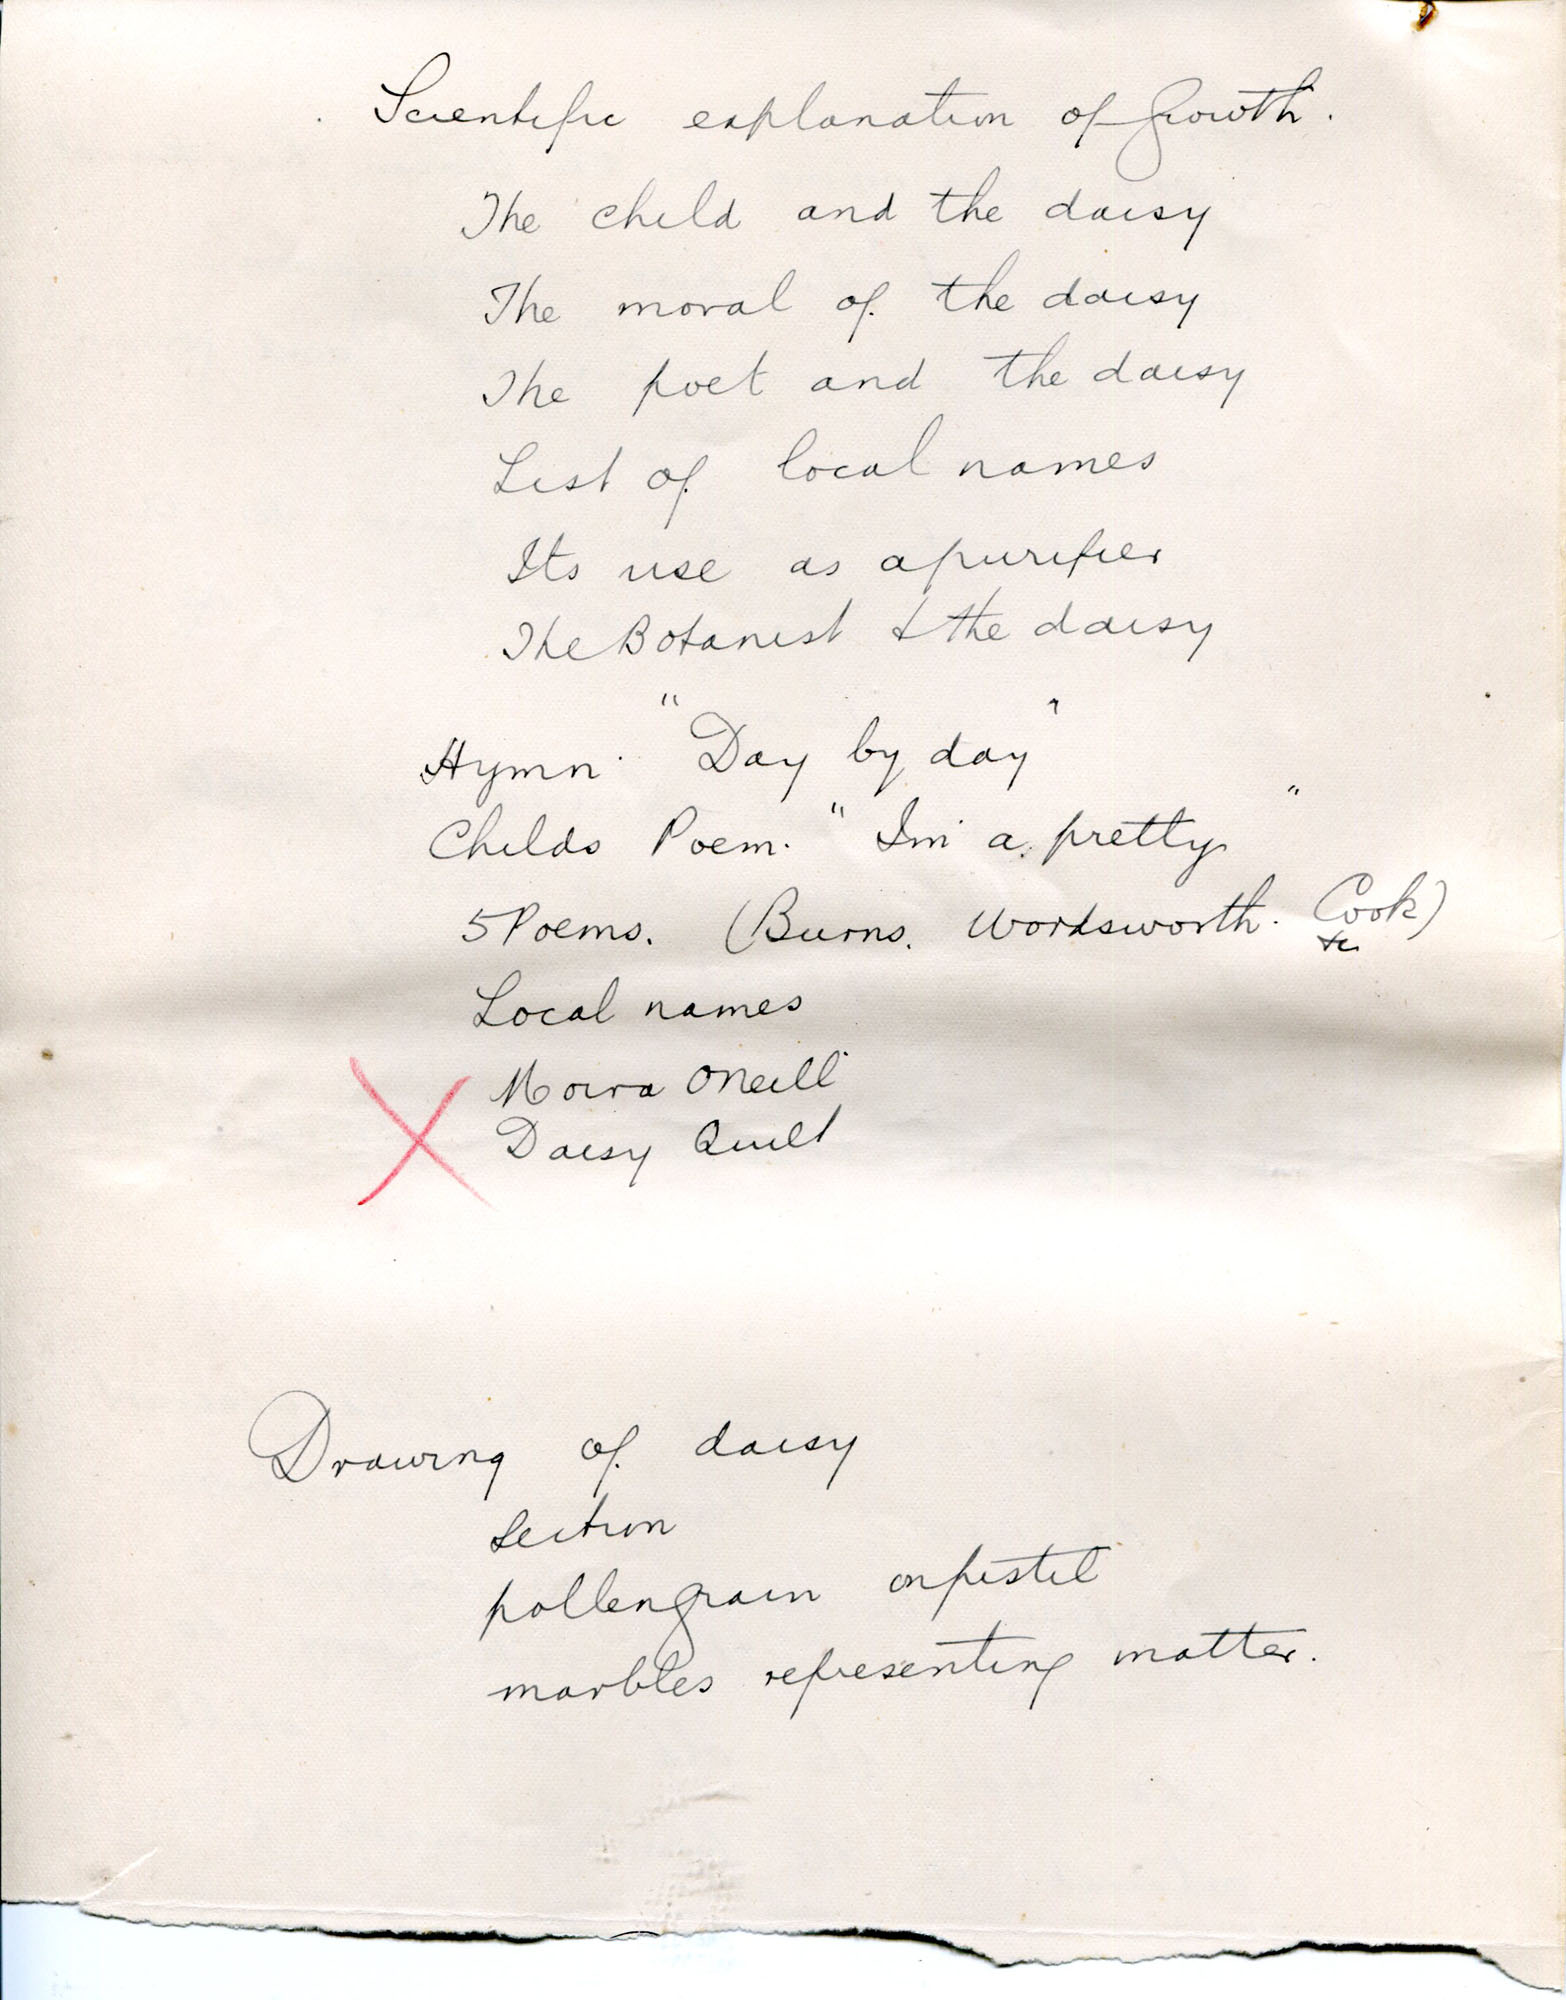 Scientific explanation of Growth.
The child and the daisy
The moral of the daisy
The poet and the daisy
List of local names
Its use as a purifier
The Botanist & the daisy
Hymn. "Day by day"
Childs Poem. "Im a pretty"
5 Poems. (Burns. Wordsworth. Cook)
&c
Local names
Moira ONeill
Daisy Quilt
Drawing of daisy
Section
pollengrain on pistil
marbles representing matter.